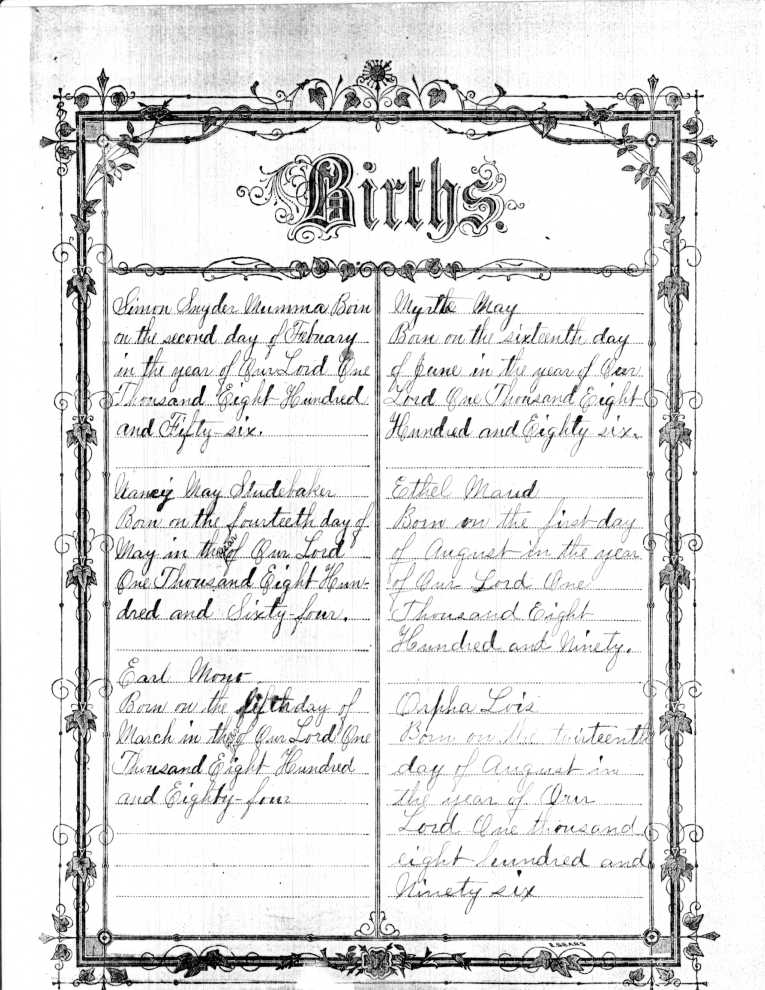 Births.
Simon Snyder Mumma Born
on the second day of Febuary
in the year of Our Lord One
Thousand Eight Hundred
and Fifty-six.
Nancy May Studebaker
Born on the fourteeth day of
May in the year of Our Lord
One Thousand Eight Hun-
dred and Sixty-four.
Earl
Born on the fifth day of
March in the of Our Lord One
Thousand Eight Hundred
and Eighty-four
Myrtle May
Born on the sixteenth day
of June in the year of Our
Lord One Thousand Eight
Hundred and Eighty six.
Ethel Maud
Born on the first day
of August in the year
of Our Lord One
Thousand Eight
Hundred and Ninety.
Orpha Lois
Born on the
day of August in
the year of Our
Lord One thousand
eight hundred and
Ninety six